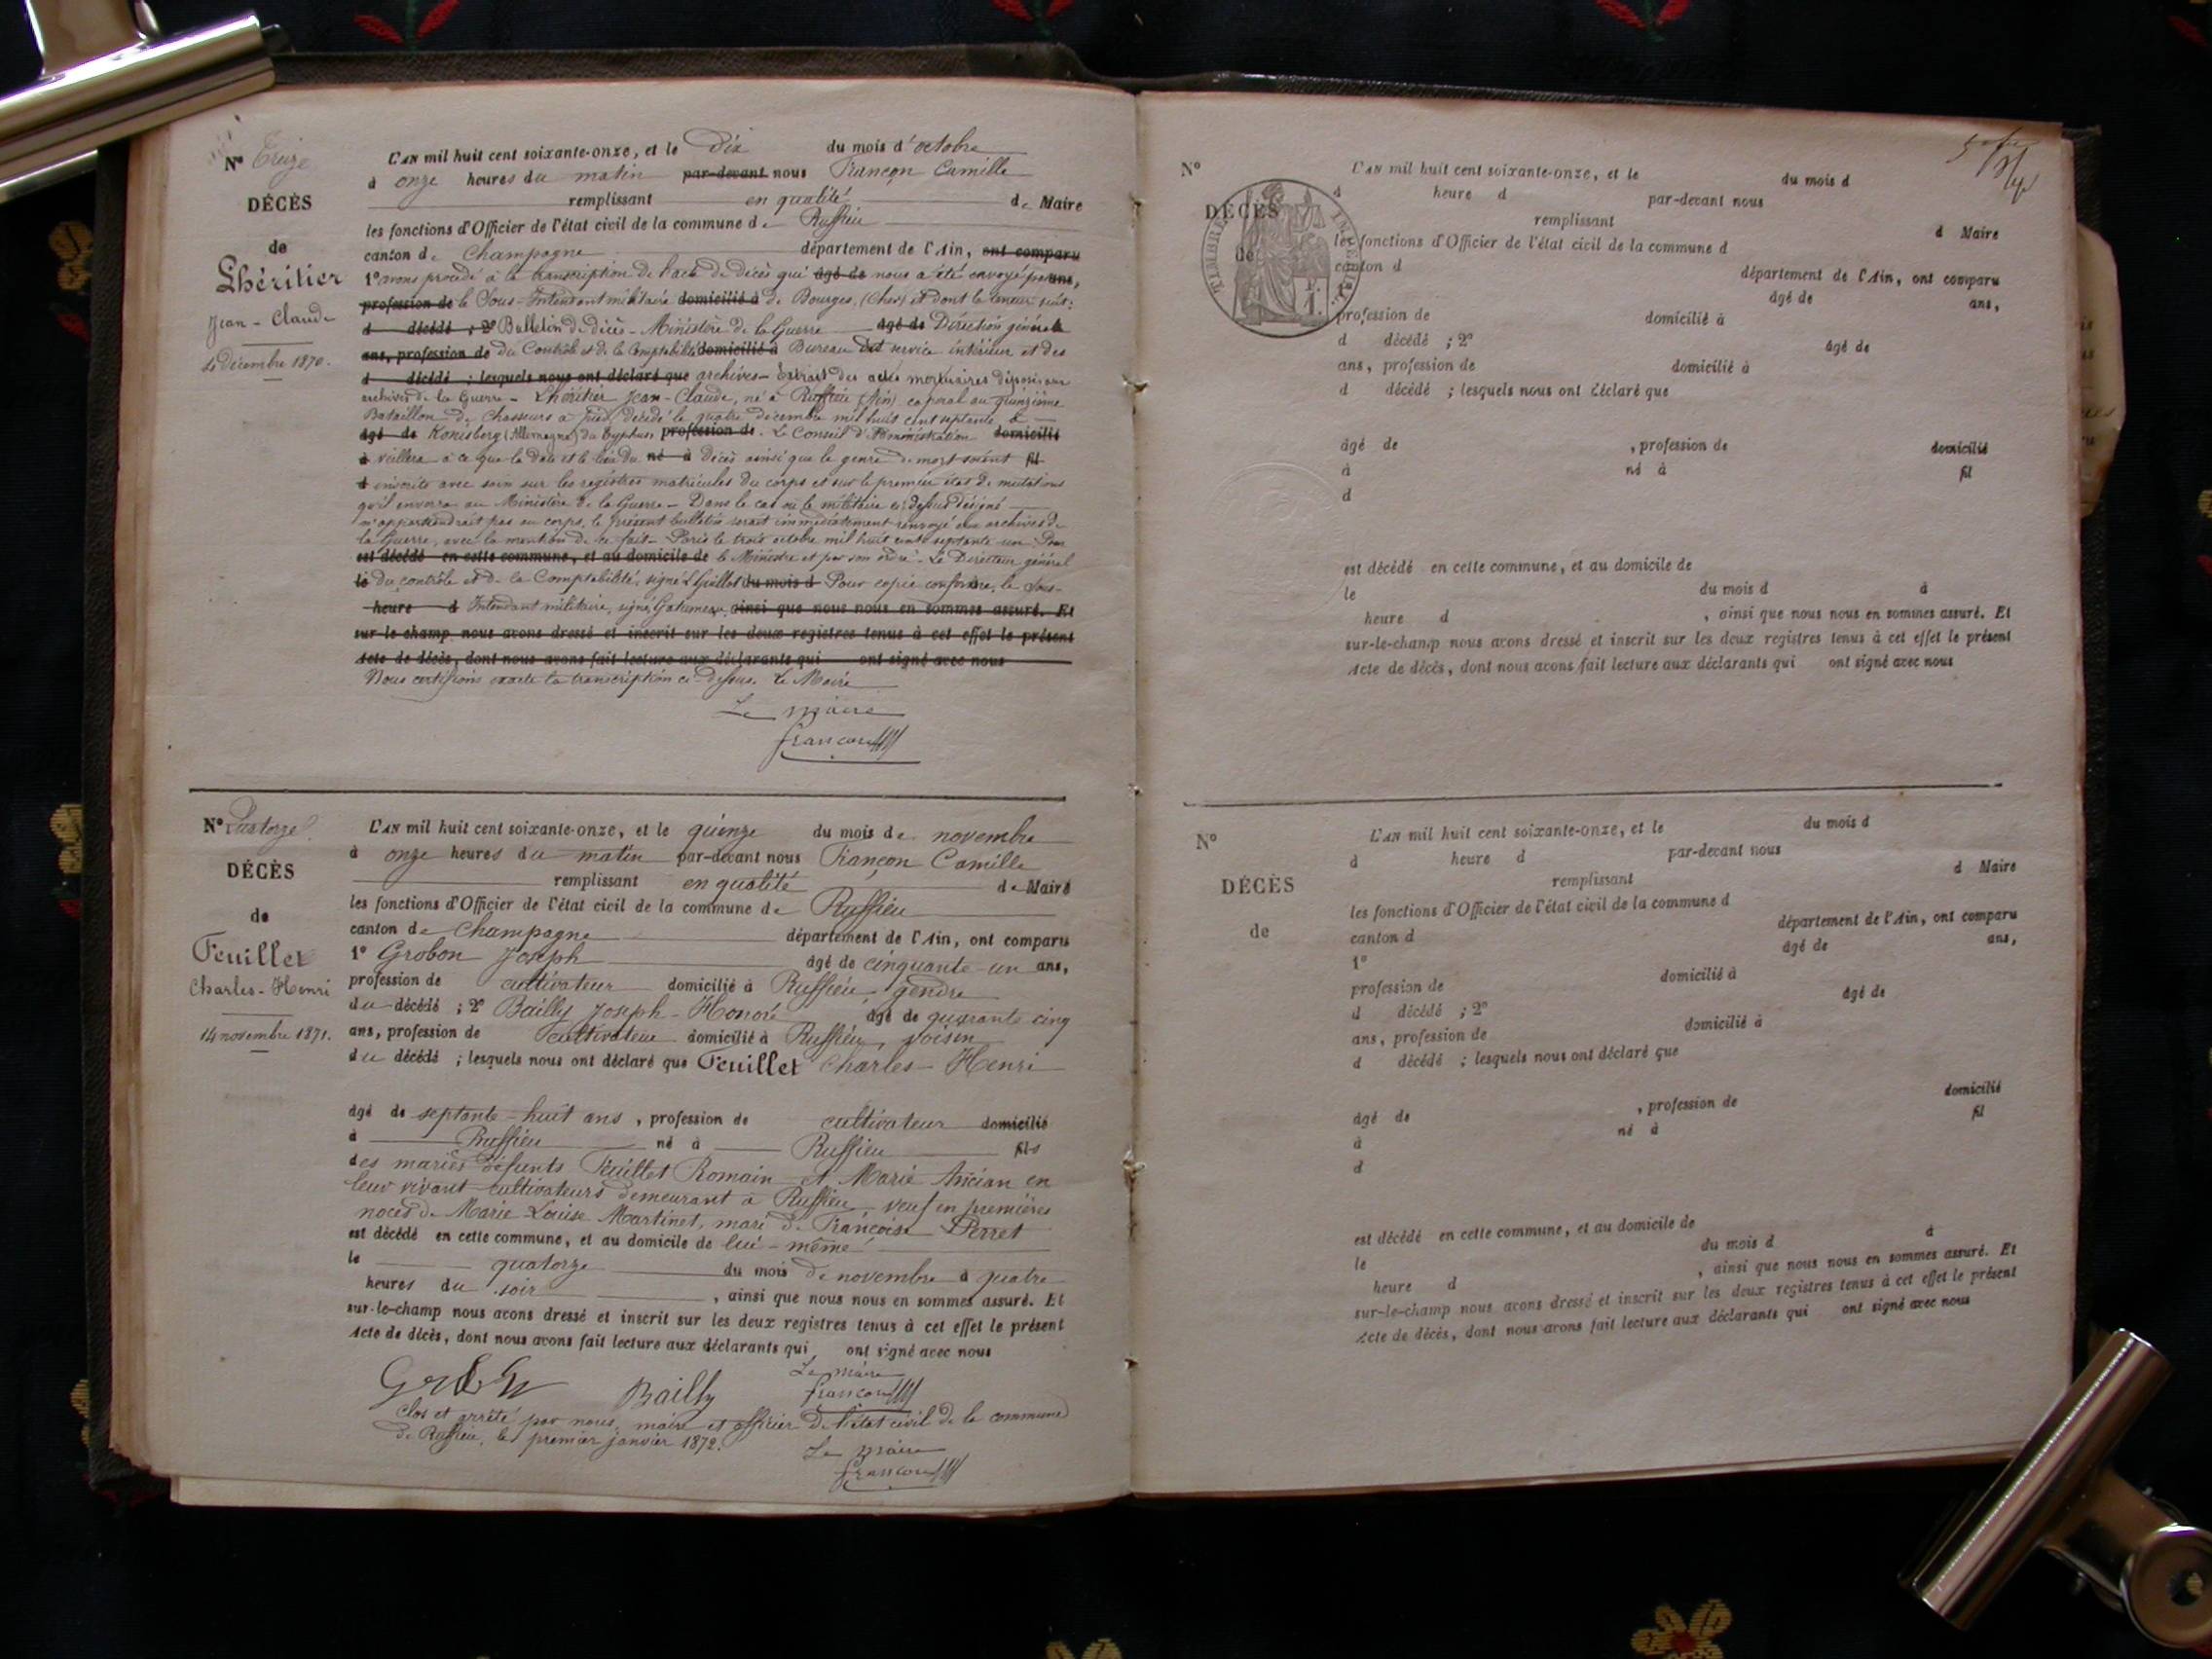 N° Treize
DÉCÈS
de
Lhéritier
Jean-Claude
4 Décembre 1870.
L'AN mil huit cent soixante-onze, et le Dix du mois d'octobre
à onze heures du matin par-devant nous Françon Camille
remplissant en qualité de Maire
les fonctions d'Officier de l'état civil de la commune de Ruffieu
canton de Champagne département de l'Ain, ont comparu
1° avons procédé à la transcription de l'acte de décès qui âgé de nous a été envoyé par ans,
profession de le Sous-Intendant militaire domicilié à de Bourges, (Cher) et dont la teneur suit:
d décédé ; 2° Bulletin de décès - Ministère de la Guerre âgé de Direction générale
ans, profession de du Contrôle et de la Comptabilité domicilié à Bureau du service intérieur et des
d décédé ; lesquels nous ont déclaré que archives - Extrait des actes mortuaires déposés aux
archives de la Guerre - Lhéritier Jean-Claude, né à Ruffieu (Ain) caporal au quinzième
Bataillon de Chasseurs à pied, décédé le quatre décembre mil huit cent septante, à
âgé de Konisberg (Allemagne) du typhus profession de . Le Conseil d'Administration domicilié
à veillera à ce que la date et le lieu du né à Décès ainsi que le genre de mort soient fil
d inscrits avec soin sur les registres matricules du corps et sur le premier état de mutations
qu'il enverra au Ministère de la Guerre - Dans le cas où le militaire ci-dessus désigné
n'appartiendrait pas au corps, le présent bulletin serait immédiatement renvoyé aux archives de
la Guerre, avec la mention de ce fait - Paris le trois octobre mil huit cent septante-un Pour
est décédé en cette commune, et au domicile de le Ministre et par son ordre - Le Directeur général
le du contrôle et de la Comptabilité, signé Guillot du mois d Pour copie conforme, le Sous-
heure d Intendant militaire, signé, ainsi que nous nous en sommes assuré. Et
sur-le-champ nous avons dressé et inscrit sur les deux registres tenus à cet effet le présent
Acte de décès, dont nous avons fait lecture aux déclarants qui ont signé avec nous
Nous certifions exacte la transcription ci-dessus. Le Maire
Le maire
françon
N° Quatorze
DÉCÈS
de
Feuillet
Charles-Henri
14 novembre 1871.
L'AN mil huit cent soixante-onze, et le quinze du mois de novembre
à onze heures du matin par-devant nous Françon Camille
remplissant en qualité de Maire
les fonctions d'Officier de l'état civil de la commune de Ruffieu
canton de Champagne département de l'Ain, ont comparu
1° Grobon Joseph âgé de cinquante-un ans,
profession de cultivateur domicilié à Ruffieu, gendre
du décédé ; 2° Bailly Joseph-Honoré âgé de quarante cinq
ans, profession de cultivateur domicilié à Ruffieu, voisin
du décédé ; lesquels nous ont déclaré que Feuillet Charles-Henri
âgé de septante-huit ans, profession de cultivateur domicilié
à Ruffieu né à Ruffieu fils
des mariés défunts Feuillet Romain et Marie Ancian en
leur vivant cultivateurs demeurant à Ruffieu, veuf en premières
noces de Marie Louise Martinet, mari de Françoise Perret
est décédé en cette commune, et au domicile de lui-même
le quatorze du mois de novembre à quatre
heures du soir , ainsi que nous nous en sommes assuré. Et
sur-le-champ nous avons dressé et inscrit sur les deux registres tenus à cet effet le présent
Acte de décès, dont nous avons fait lecture aux déclarants qui ont signé avec nous
Grobon Bailly Le maire
françon
Clos et arrêté par nous, maire et officier de l'état civil de la commune
de Ruffieu, le premier janvier 1872.
Le maire
françon
N°
DÉCÈS
de
TIMBRE IMPÉRIAL
L'AN mil huit cent soixante-onze, et le du mois d
à heure d par-devant nous
remplissant d Maire
les fonctions d'Officier de l'état civil de la commune d
canton d département de l'Ain, ont comparu
âgé de ans,
profession de domicilié à
d décédé ; 2° âgé de
ans, profession de domicilié à
d décédé ; lesquels nous ont déclaré que
âgé de , profession de domicilié
à né à fil
d
est décédé en cette commune, et au domicile de
le du mois d à
heure d , ainsi que nous nous en sommes assuré. Et
sur-le-champ nous avons dressé et inscrit sur les deux registres tenus à cet effet le présent
Acte de décès, dont nous avons fait lecture aux déclarants qui ont signé avec nous
N°
DÉCÈS
de
L'AN mil huit cent soixante-onze, et le du mois d
à heure d par-devant nous
remplissant d Maire
les fonctions d'Officier de l'état civil de la commune d
canton d département de l'Ain, ont comparu
1° âgé de ans,
profession de domicilié à
d décédé ; 2° âgé de
ans, profession de domicilié à
d décédé ; lesquels nous ont déclaré que
âgé de , profession de domicilié
à né à fil
d
est décédé en cette commune, et au domicile de
le du mois d à
heure d , ainsi que nous nous en sommes assuré. Et
sur-le-champ nous avons dressé et inscrit sur les deux registres tenus à cet effet le présent
Acte de décès, dont nous avons fait lecture aux déclarants qui ont signé avec nous